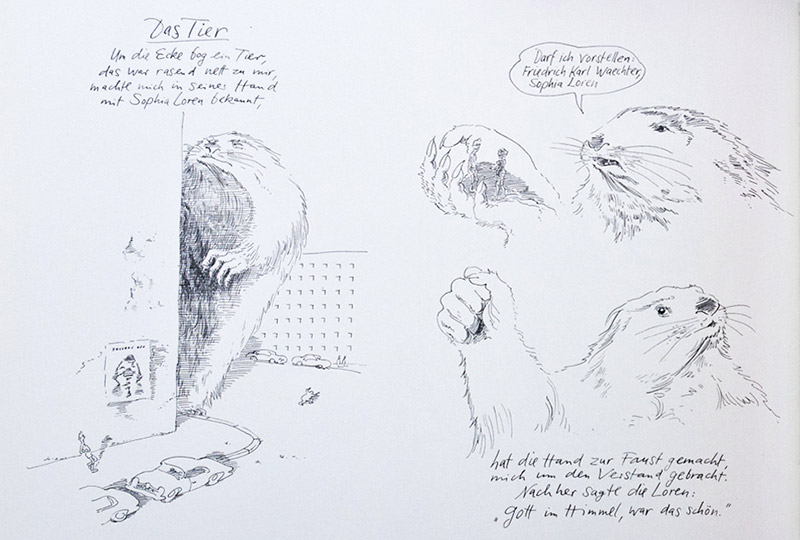 Das Tier
Um die Ecke bog ein Tier,
das war rasend nett zu mir,
machte mich in seines Hand
mit Sophia Loren bekannt,
Darf ich vorstellen:
Friedrich Karl Waechter,
Sophia Loren
hat die Hand zur Faust gemacht,
mich um den Verstand gebracht.
Nachher sagte die Loren:
„Gott im Himmel, war das schön."